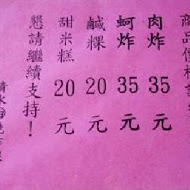 商品價格
肉炸 35 元
蚵炸 35 元
鹹粿 20 元
甜米糕 20 元
懇請繼續支持！
清水